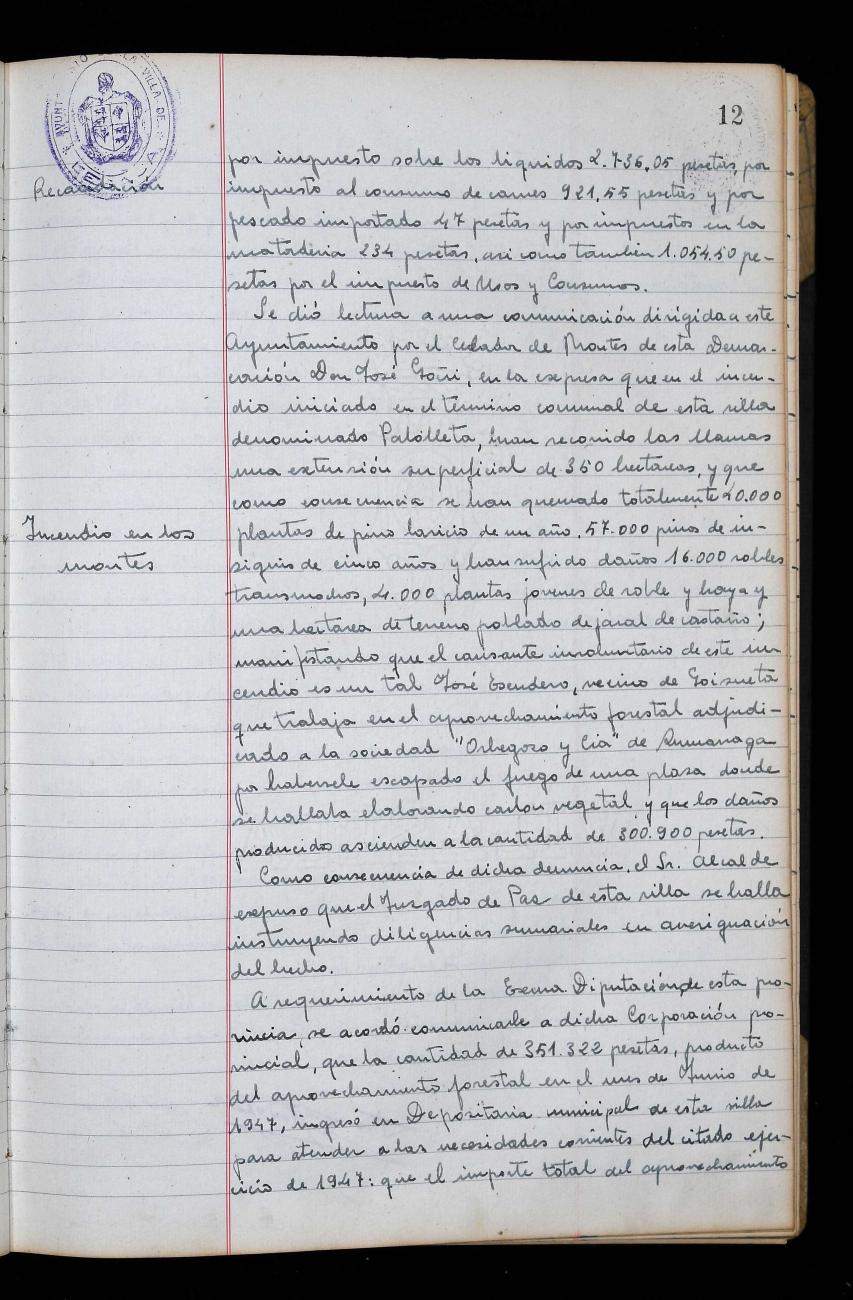 12
Recaudación
por impuesto sobre los líquidos 2.736,05 pesetas, por
impuesto al consumo de carnes 921,55 pesetas y por
pescado importado 47 pesetas y por impuestos en la
matadería 234 pesetas, asi como también 1.054.50 pe-
setas por el impuesto de Usos y Consumos.
Se dió lectura a una comunicación dirigida a este
Ayuntamiento por el Celador de Montes de esta Demar-
cación Don José Goñi, en la expresa que en el incen-
dio iniciado en el término comunal de esta villa
denominado Palolleta, han recorrido las llamas
una extensión superficial de 350 hectareas, y que
como consecuencia se han quemado totalmente 20.000
Incendio en los
montes
plantas de pino laricio de un año, 57.000 pinos de in-
siguis de cinco años y han sufrido daños 16.000 robles
transmochos, 4.000 plantas jovenes de roble y haya y
una hectarea de terreno poblado de jaral de castaño;
manifestando que el causante involuntario de este in-
cendio es un tal José Escudero, vecino de Goizueta
que trabaja en el aprovechamiento forestal adjudi-
cado a la sociedad "Orbegozo y Cia" de Zumarraga
por habersele escapado el fuego de una plaza donde
se hallaba elaborando carbon vegetal y que los daños
producidos ascienden a la cantidad de 300.900 pesetas.
Como consecuencia de dicha denuncia, el Sr. Alcalde
expuso que el Juzgado de Paz de esta villa se halla
instruyendo diligencias sumariales en averiguación
del hecho.
A requerimiento de la Exema. Diputación de esta pro-
vincia, se acordó comunicarle a dicha Corporación pro-
vincial, que la cantidad de 351.322 pesetas, producto
del aprovechamiento forestal en el mes de Junio de
1947, ingresó en Depositaria municipal de esta villa
para atender a las necesidades corrientes del citado ejer-
cicio de 1947: que el importe total del aprovechamiento